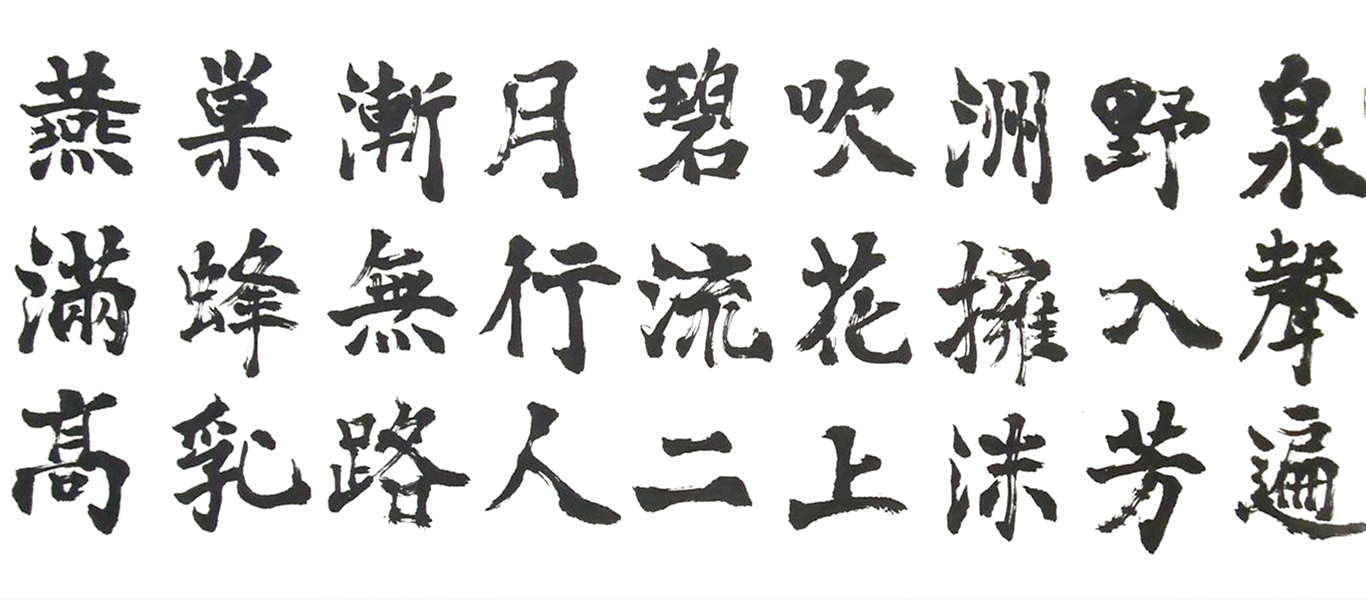 泉聲遍
野入芳
洲擁沫
吹花上
碧流二
月行人
漸無路
巢蜂乳
燕滿高